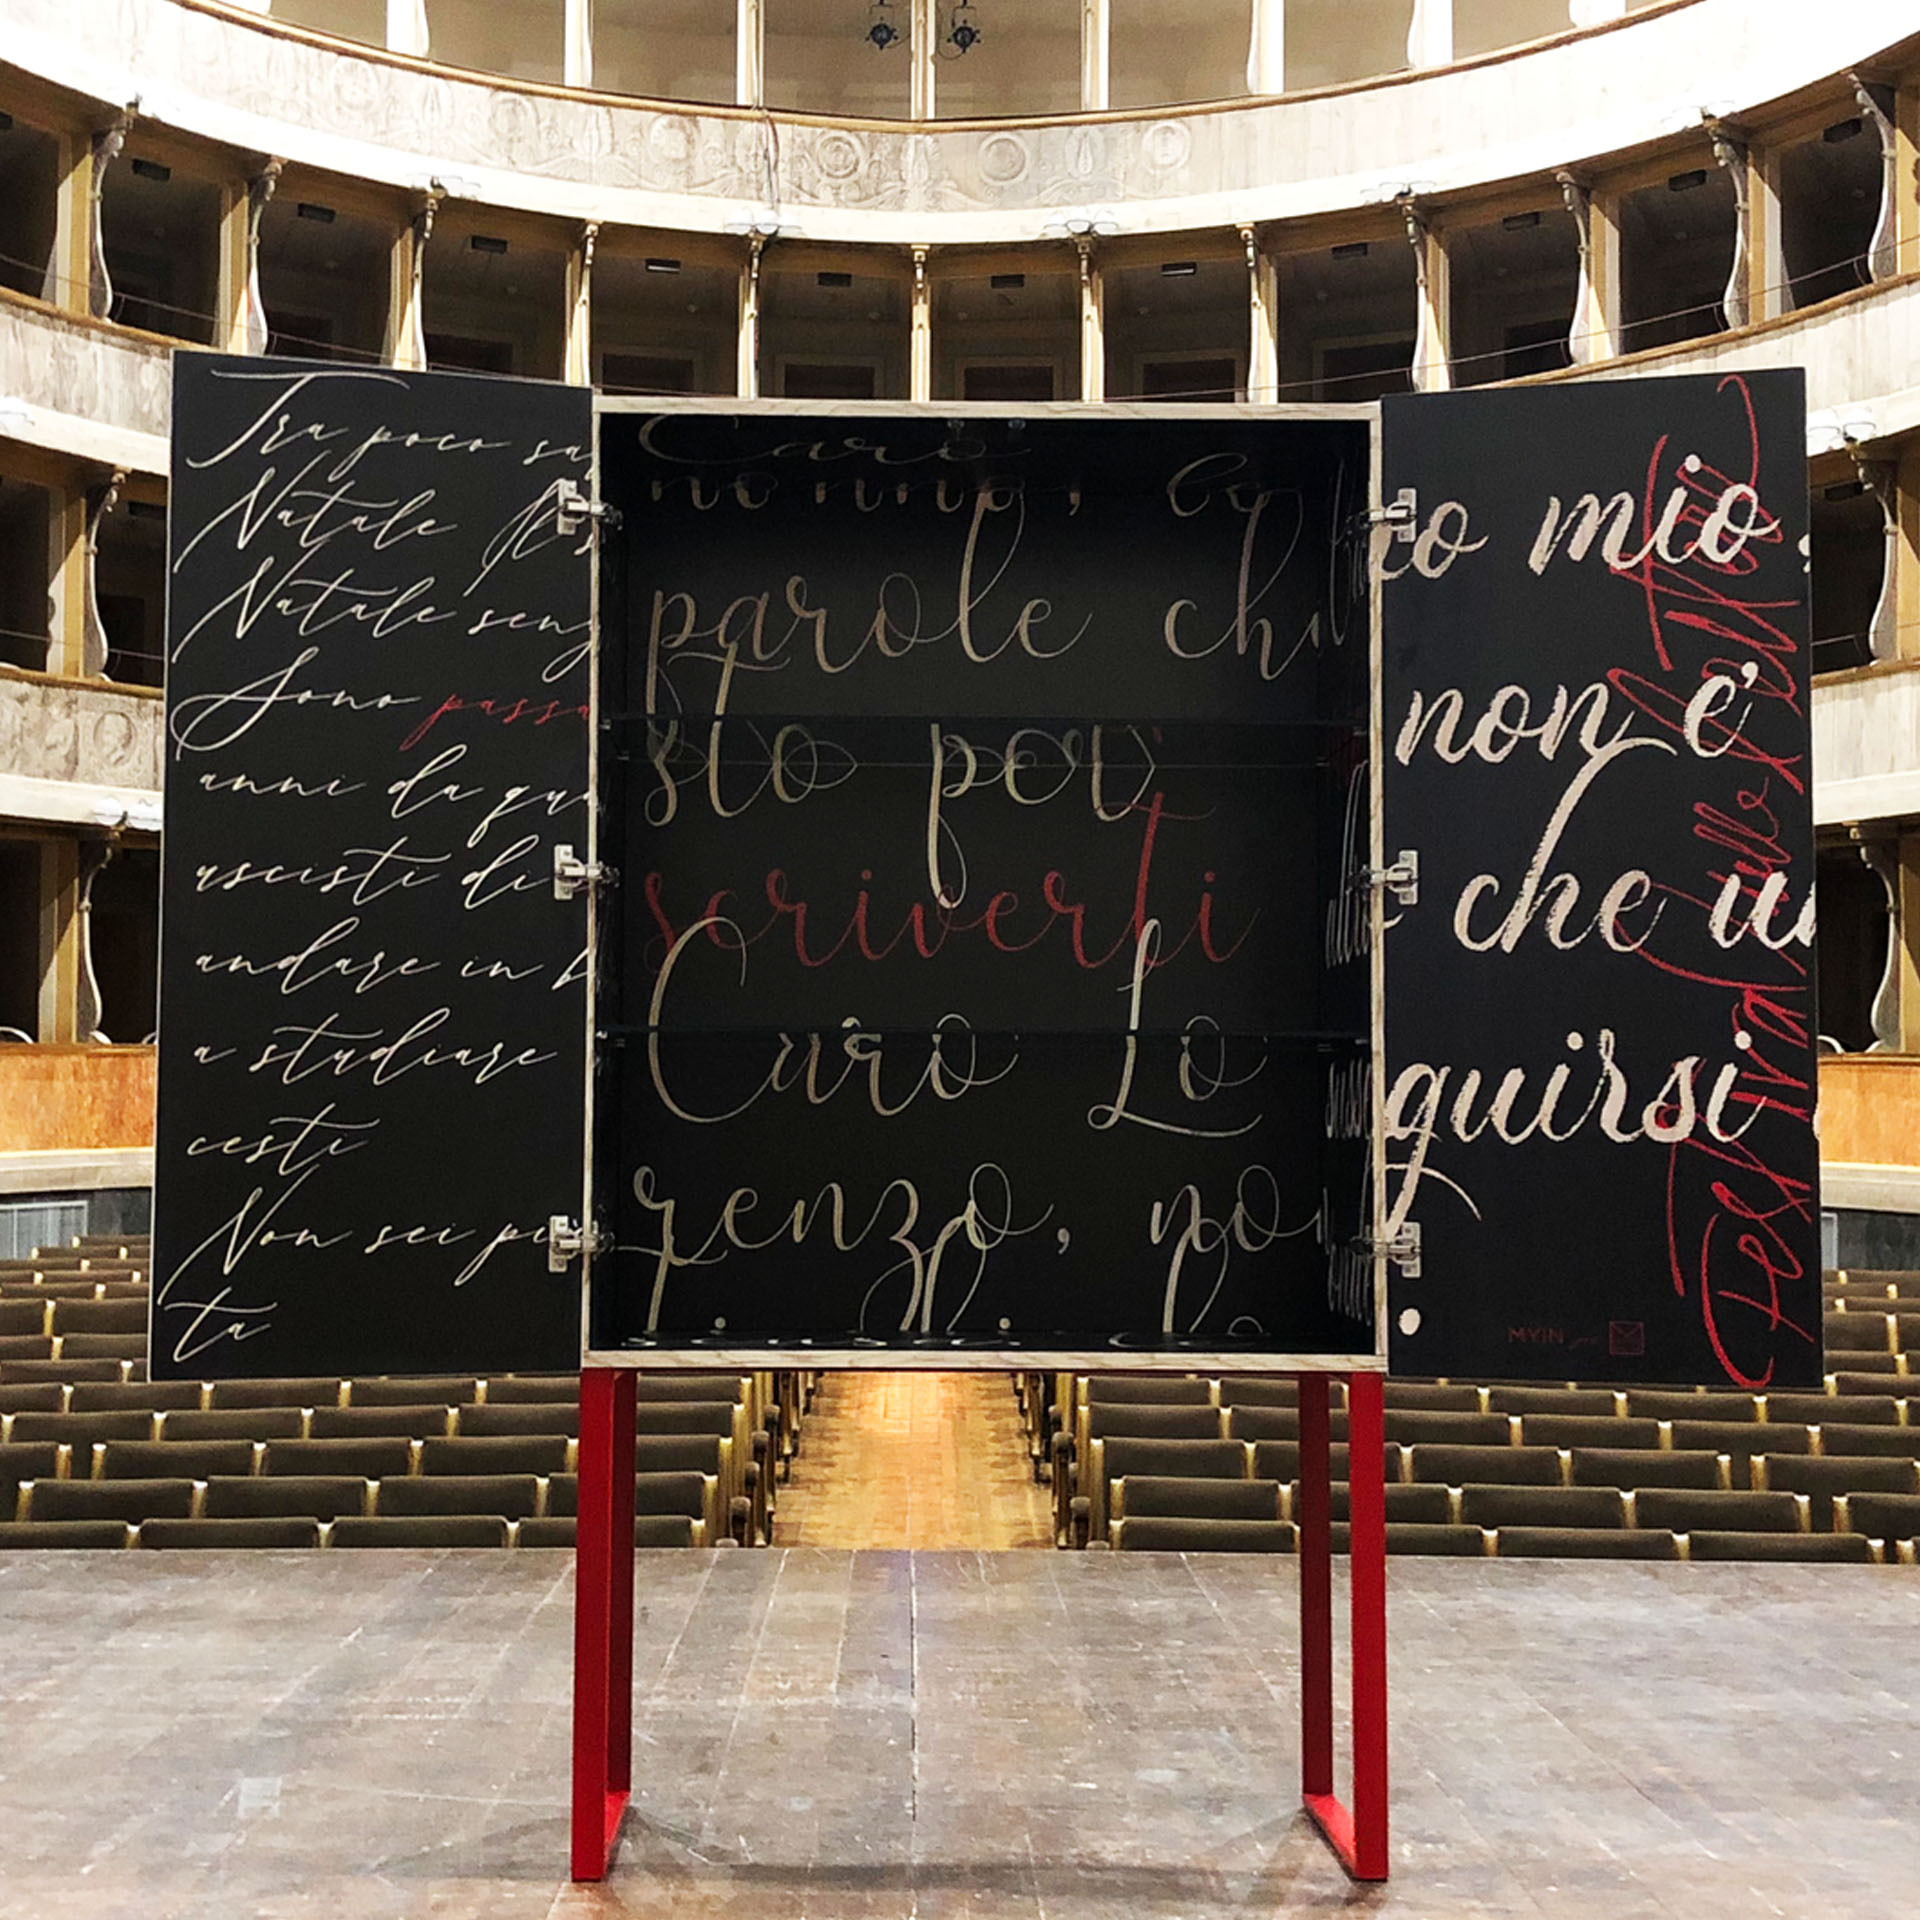 Tra poco sa
Natale Il s
Natale senz
Sono passa
anni da qua
uscisti di
andare in b
a studiare
cesti
Non sei più
ta
Caro
nonno, bo
parole che
sto per
scriverti
Caro Lo
renzo, no
co mio,
non e'
che un
guirsi
Festival delle Lettere
MYIN per